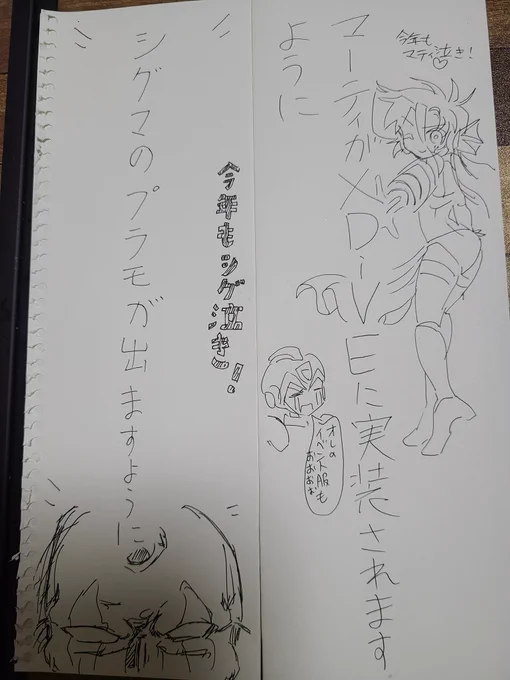 今年も
マティ泣き!
マーティがXDiVEに実装されます
ように
オレの
イベント服も
おおおお
今年もシグ泣き!
シグマのプラモが出ますように